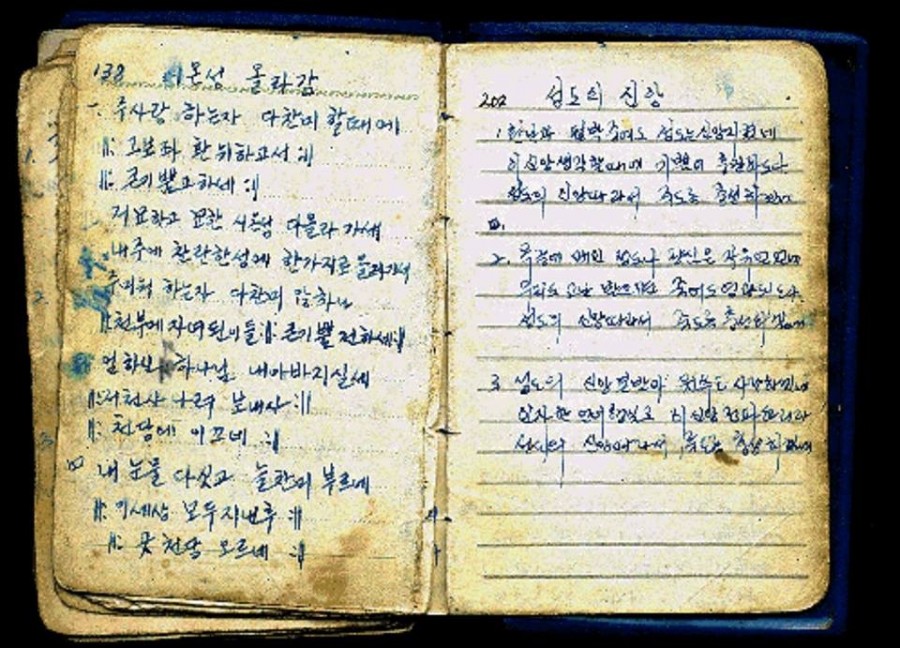 138 시온성 올라감
一. 주사랑 하는자 다찬미 할때에
𝄆 보좌 환위하고서 𝄇
𝄆 큰기쁨고하세 𝄇
거요하고 묘한 시온성 다올라 가세
내주에 찬란한성에 한가지로 올라가세
하는자 다찬미
𝄆 천부에 자녀된이들 𝄇 𝄆 큰기쁨 전하세 𝄇
하나님 내아바지실세
𝄆 서천사 나려 보내사 𝄇
𝄆 천당에 이끄네 𝄇
四 내 눈물 다싯고 늘찬미 부르네
𝄆 이세상 모두지낸후 𝄇
𝄆 곳 천당 오르네 𝄇
202 성도의 신앙
1. 환난과 핍박 중에도 성도는 신앙직혔네
이 신앙생각할때에 기쁨이 충만하도다
성도의 신앙따라서 죽도록 충성하겠네
2. 매인 성도나 양심은 자유
죽어도 영광되도다
성도의 신앙따라서 죽도록 충성하겠네
3. 성도의 신앙본받아 원수도 사랑하겠네
인자한 언어행실로 이신앙 전파하리라
성도의 신앙따라서 죽도록 충성하겠네